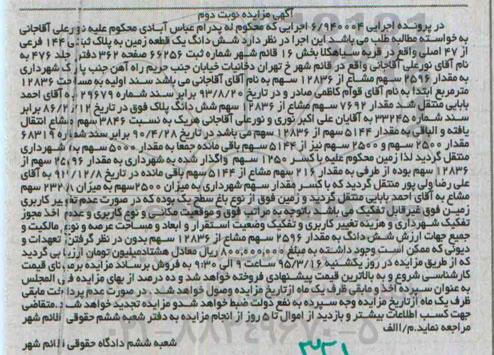 آگهی مزایده نوبت دوم
در پرونده اجرایی ۶/۹۴۰۰۰۴ اجرایی که محکوم له پدرام عباس آبادی محکوم علیه نورعلی آقاجانی
به خواسته مطالبه طلب می باشد این اجرا در نظر دارد شش دانگ یک قطعه زمین به پلاک ثبتی ۱۴۴ فرعی
از ۴۷ اصلی واقع در قریه سیاهکلا بخش ۱۶ قائم شهر شماره ثبت ۶۶۲۵۶ صفحه ۳۶۲ دفتر جلد ۴۷۶ به
نام آقای نورعلی آقاجانی واقع در قائم شهر خ تهران دخانیات خیابان جنب حریم راه آهن جنب پارک شهرداری
به مقدار ۲۵۹۶ سهم مشاع از ۱۲۸۳۶ سهم به نام آقای آقاجانی می باشد سند اولیه به مساحت ۱۲۸۳۶
مترمربع ابتدا به نام آقای قوام کاظمی صادر و در تاریخ ۹۳/۸/۲۰ برابر سند شماره ۲۹۶۷۹ به آقای احمد
بابایی منتقل شد مقدار ۷۶۹۲ سهم مشاع از ۱۲۸۳۶ سهم شش دانگ پلاک فوق در تاریخ ۸۶/۲/۱۲ برابر
سند شماره ۳۳۲۴۵ به آقایان علی اکبر نوری و نورعلی آقاجانی هریک به نسبت ۳۸۴۶ سهم مشاع انتقال
یافته و الباقی به مقدار ۵۱۴۴ سهم از ۱۲۸۳۶ سهم می باشد در تاریخ ۹۰/۴/۲۸ برابر سند شماره ۶۸۳۱۹
مقدار ۲۵۰۰ سهم و ۲۵۰۰ سهم نیز از ۵۱۴۴ سهم باقی مانده جمعا به مقدار ۵۰۰۰ سهم به شهرداری
منتقل گردید لذا زمین محکوم علیه با کسر ۱۲۵۰ سهم واگذار شده به شهرداری به مقدار ۲۵۹۶ سهم از
۱۲۸۳۶ سهم بوده از طرفی به مقدار ۲۱۶ سهم مشاع از ۵۱۴۴ سهم باقی مانده در تاریخ ۹۲/۱۲/۸ به آقای
علی رضا ولی پور منتقل گردید که با کسر مقدار سهم شهرداری به میزان ۲۵۰۰ سهم به میزان سهم
مشاع به آقای احمد بابایی منتقل گردید و زمین فوق از نوع باغ سطح یک بوده که در صورت عدم تغییر کاربری
زمین فوق غیرقابل تفکیک می باشد باتوجه به مراتب فوق و موقعیت مکانی و نوع کاربری و عدم اخذ مجوز
تفکیک شهرداری و هزینه تغییر کاربری و تفکیک وضعیت استقرار و ابعاد و مساحت عرصه و نوع مالکیت و
جمیع جهات ارزش شش دانگ به مقدار ۲۵۹۶ سهم مشاع از ۱۲۸۳۶ سهم بدون در نظر گرفتن تعهدات و
دیونی که ممکن است وجود داشته به مبلغ ۸۰۰،۰۰۰،۰۰۰ ریال معادل هشتادمیلیون تومان ارزیابی گردید
که از طریق مزایده در روز یکشنبه ۹۵/۳/۱۶ ساعت ۹ الی ۹:۳۰ به فروش برساند مزایده برمبنای قیمت
کارشناسی شروع و به بالاترین قیمت پیشنهادی فروخته خواهد شد و ده درصد از بهای مزایده فی المجلس
به عنوان سپرده اخذ و مابقی ظرف یک ماه از تاریخ مزایده وصول خواهد شد. در صورت عدم پرداخت مابقی
ظرف یک ماه از تاریخ مزایده وجه سپرده به نفع دولت ضبط خواهد شدو مزایده تجدید خواهد شد. متقاضی
جهت کسب اطلاعات بیشتر و بازدید از اموال تا ۵ روز از انجام مزایده به دفتر شعبه ششم حقوقی قائم شهر
مراجعه نماید.م/الف
شعبه ششم دادگاه حقوقی قائم شهر
۰۲۱-۸۸۳۴۹۶۷۰-۵